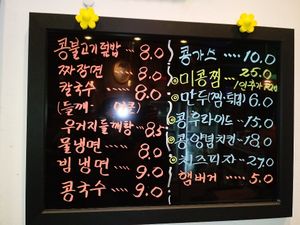 콩불고기덮밥 ···· 8.0
짜장면 ···· 8.0
칼국수 ···· 8.0
(들깨·얼큰)
우거지들깨탕 ··· 8.5
물냉면 ···· 8.0
비빔냉면 ···· 9.0
콩국수 ···· 9.0
콩가스 ···· 10.0
미콩찜 ···· 25.0
만두(찜·튀김) 6.0
콩후라이드 ·· 15.0
콩양념치킨 ·· 18.0
치즈피자 ·· 27.0
햄버거 ···· 5.0